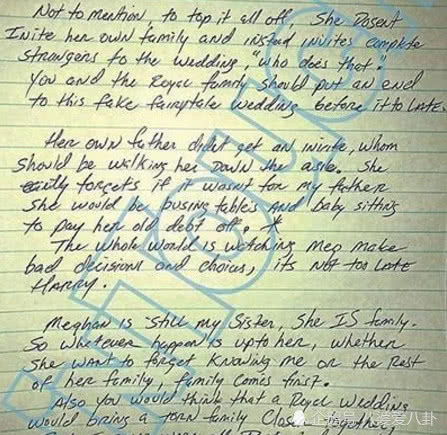 Not to mention, to top it all off, She Dosent
Inite her own family and instead invites complete
strangers to the wedding, "who does that"
You and the Royal family should put an end
to this fake fairytale wedding before it to Late
Her own father didnt get an invite, whom
should be walking her Down the asle. She
forgets if it wasnt for my father
she would be busing tables AND baby sitting
to pay her old debt off. *
The whole world is watching Meg make
bad decisions and choices, its NOT too Late
HARRY.
Meghan is still my Sister, She IS family.
So whatever happen is up to her, whether
she want to forget knowing me or the rest
of her family, family comes first.
Also you would think that a Royal wedding
would bring a torn family Closer together,